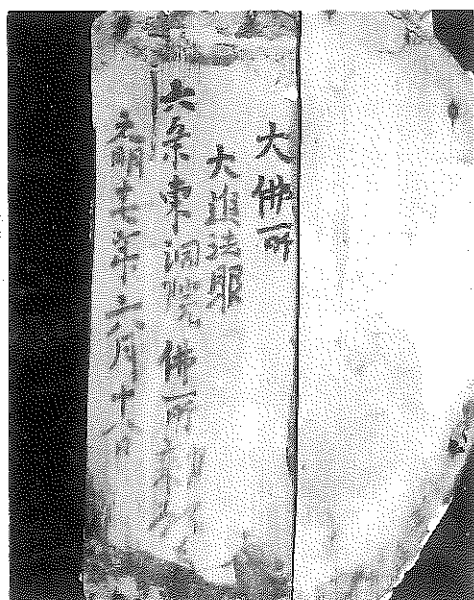 大佛所
大進法眼
六条東洞院佛所
文明年六月十日